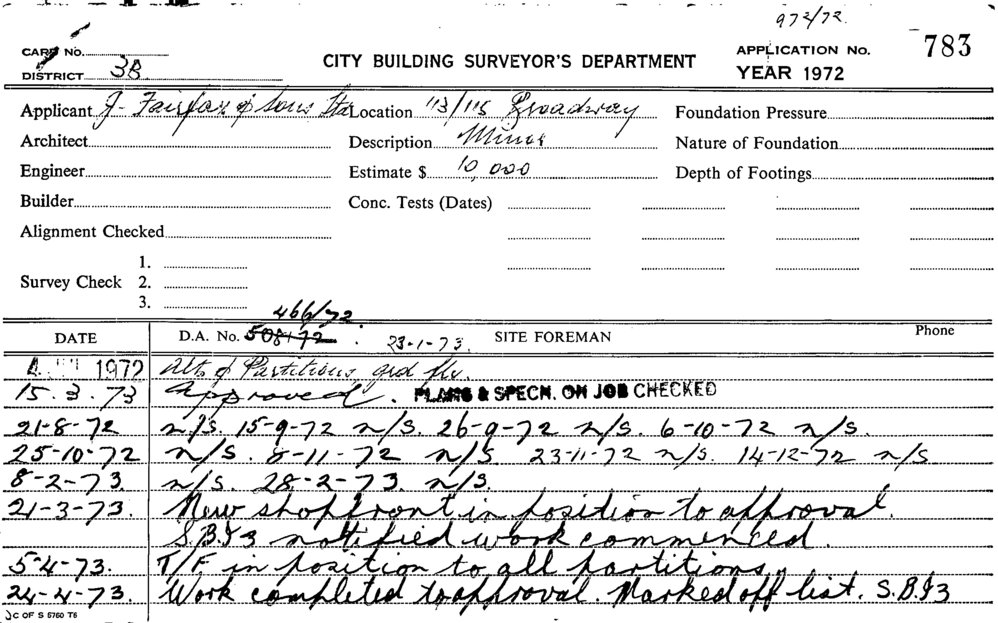 973/72.
CARD No.
DISTRICT 3B
CITY BUILDING SURVEYOR'S DEPARTMENT
APPLICATION No. 783
YEAR 1972
Applicant J. Fairfax & Sons Location 113/115 Broadway Foundation Pressure
Architect Description Minor Nature of Foundation
Engineer Estimate $ 10,000 Depth of Footings
Builder Conc. Tests (Dates)
Alignment Checked
1.
Survey Check 2.
3.
466/72
DATE D.A. No. 508/72 . 23-1-73. SITE FOREMAN Phone
1972 Alts & Partitions grd flr.
15.3.73 Approved. PLANS & SPECN. ON JOB CHECKED
21-8-72 n/s. 15-9-72 n/s. 26-9-72 n/s. 6-10-72 n/s.
25-10-72 n/s. 8-11-72 n/s 23-11-72 n/s. 14-12-72 n/s
8-2-73 n/s. 28-2-73. n/s.
21-3-73. New shopfront in position to approval.
S.B.I3 notified work commenced.
5-4-73. T/F in position to all partitions.
24-4-73. Work completed to approval. Marked off list. S.B.I3
C OF S 5760 T6